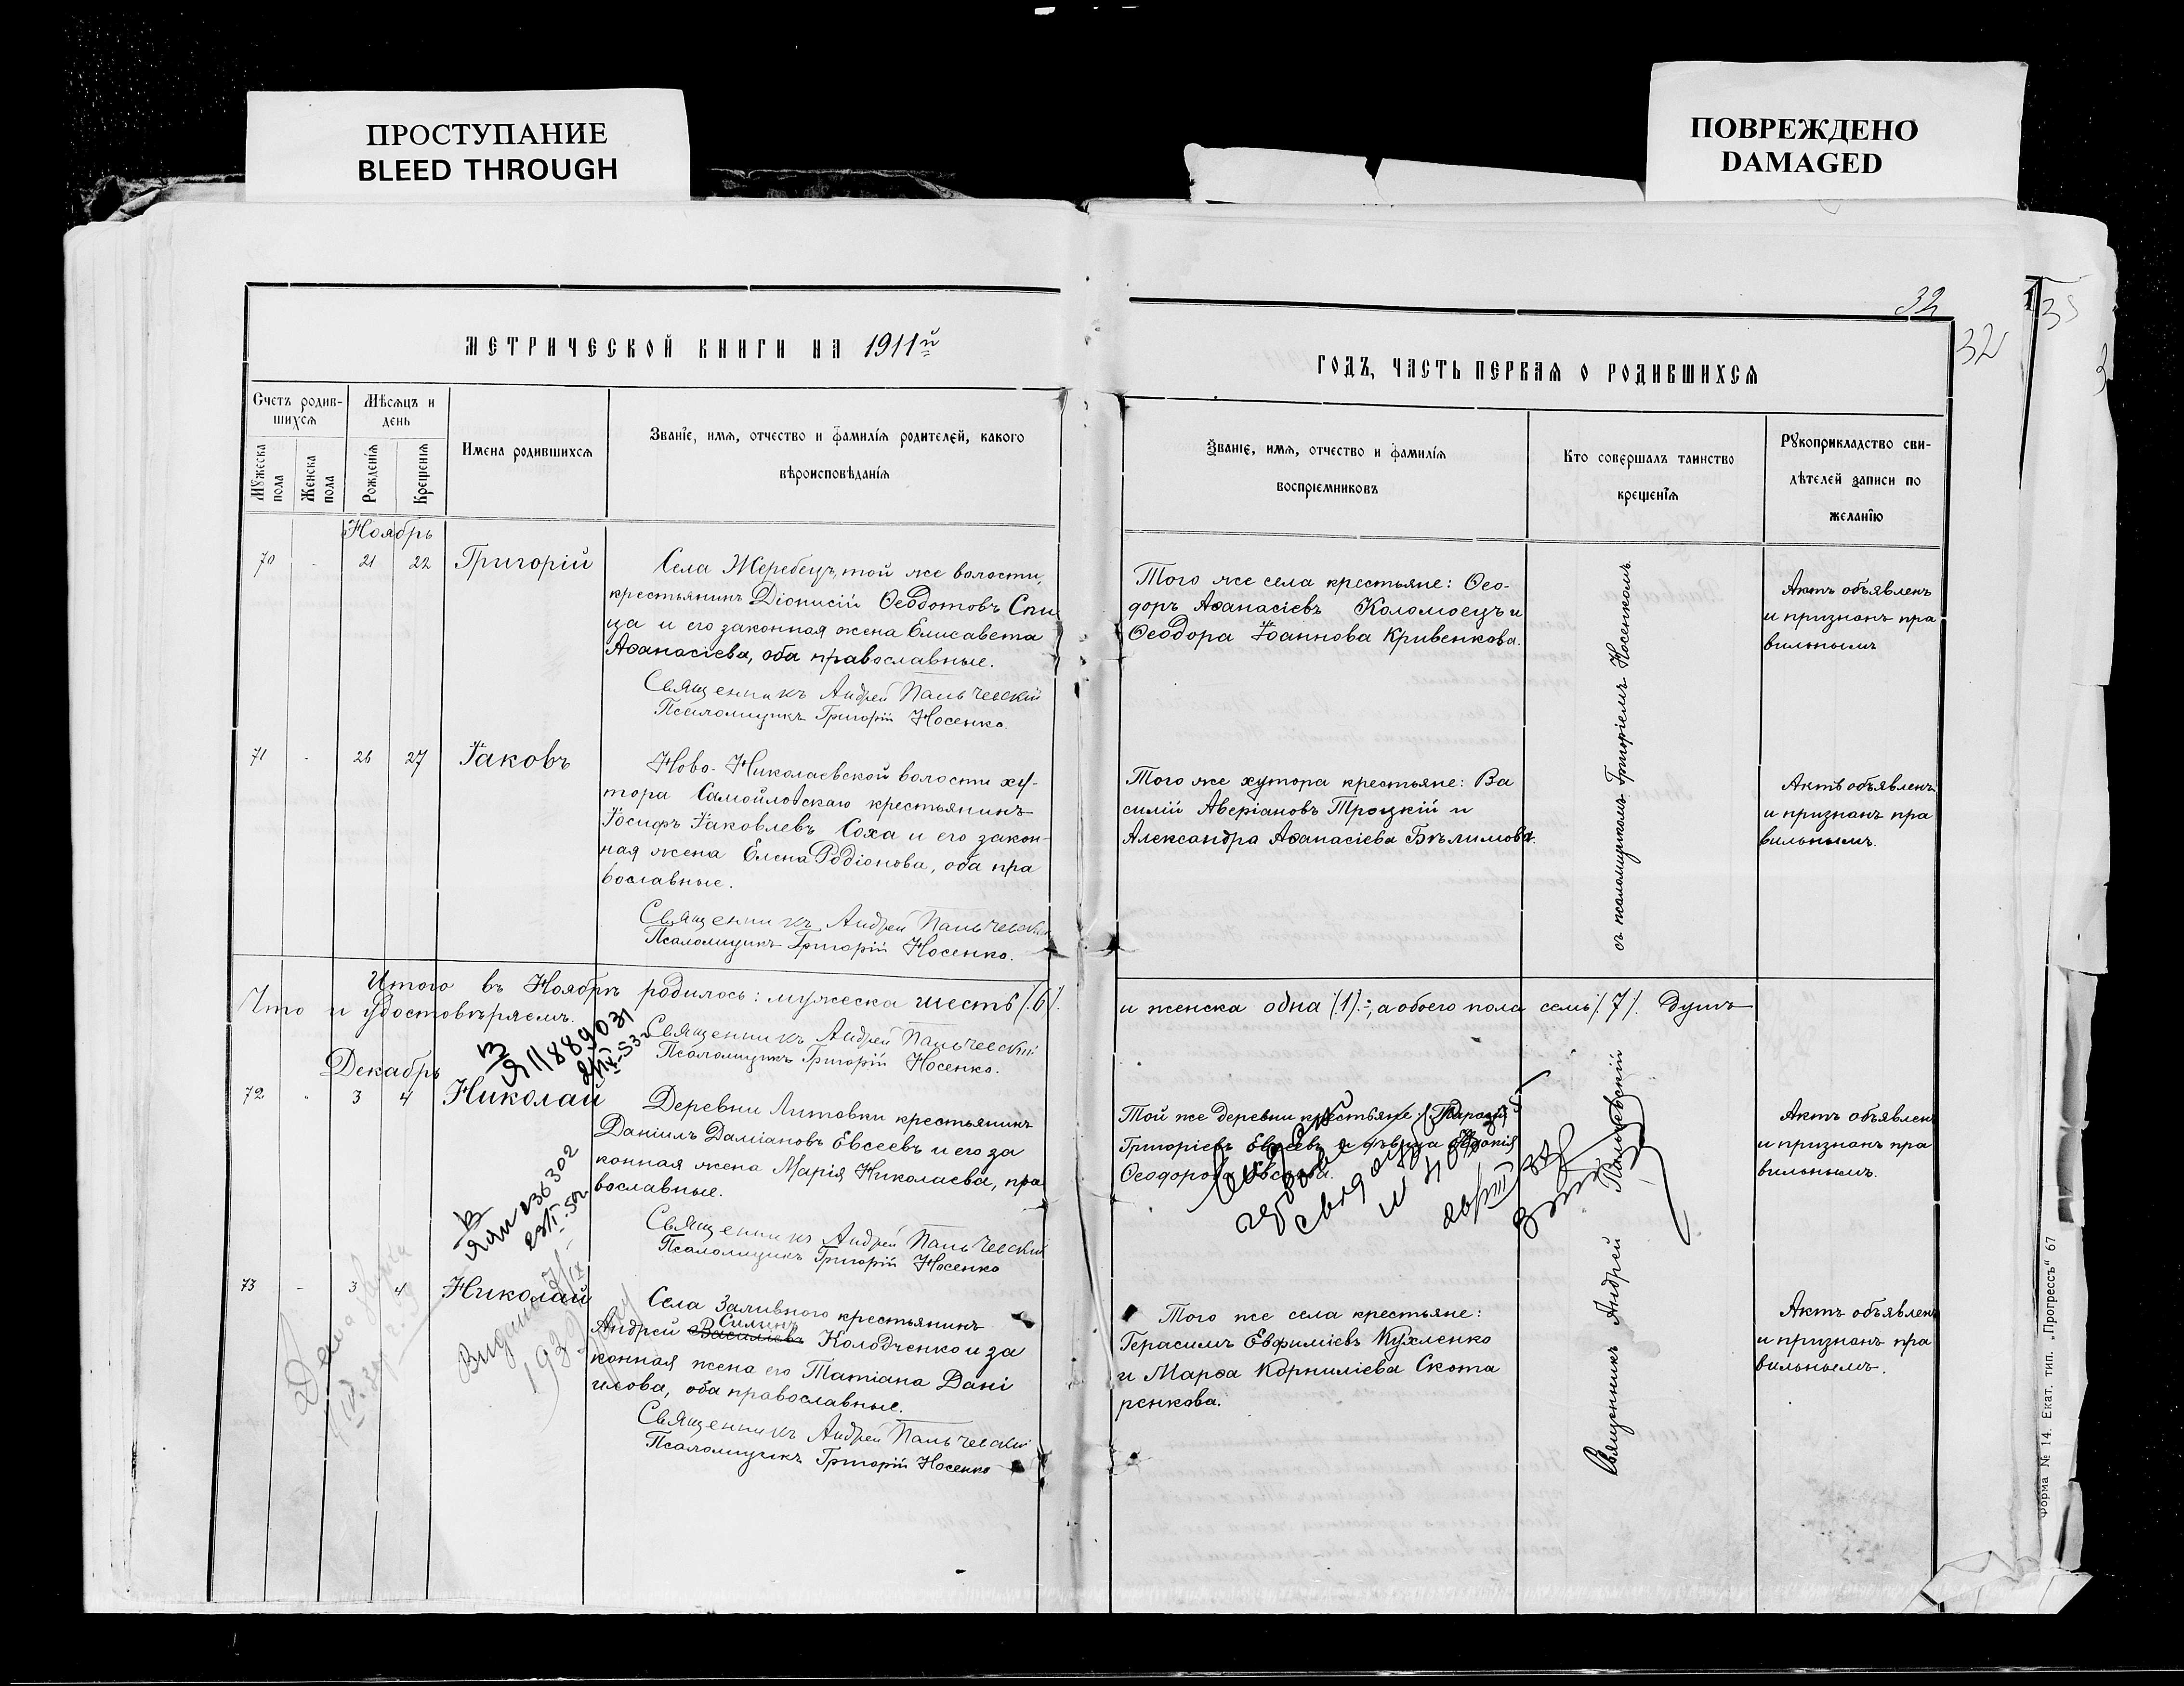 ПРОСТУПАНИЕ
BLEED THROUGH
ПОВРЕЖДЕНО
DAMAGED
32
32
МЕТРИЧЕСКОЙ КНИГИ НА 1911й
ГОДЪ, ЧАСТЬ ПЕРВАЯ О РОДИВШИХСЯ
Счетъ родив-
шихся
Мѣсяцъ и
день
Мужеска пола
Женска пола
Рожденія
Крещенія
Имена родившихся
Званіе, имя, отчество и фамилія родителей, какого
вѣроисповѣданія
Званіе, имя, отчество и фамилія
воспріемниковъ
Кто совершалъ таинство
крещенія
Рукоприкладство сви-
дѣтелей записи по
желанію
Ноябрь
70 - 21 22 Григорій
Села Жеребецъ, той же волости,
крестьянинъ Діонисій Ѳеодотовъ Спи
ца и его законная жена Елисавета
Аѳанасіева, оба православные.
Священникъ Андрей Пальчевскій
Псаломщикъ Григорій Носенко.
Того же села крестьяне: Ѳео-
доръ Аѳанасіевъ Коломоецъ и
Ѳеодора Іоаннова Кривенкова.
Актъ объявленъ
и признанъ пра
вильнымъ
71 - 26 27 Іаковъ
Ново-Николаевской волости ху-
тора Самойловскаго крестьянинъ
Іосифъ Іаковлевъ Соха и его закон-
ная жена Елена Родіонова, оба пра
вославные.
Священникъ Андрей Пальчевскій
Псаломщикъ Григорій Носенко.
Того же хутора крестьяне: Ва
силій Аверіановъ Троцкій и
Александра Аѳанасіева Бѣлимова.
Актъ объявленъ
и признанъ пра
вильнымъ.
съ псаломщикомъ Григоріемъ Носенкомъ.
Итого въ Ноябрѣ родилось: мужеска шесть /.6/.
и женска одна /.1/.; а обоего пола семь /.7/. душъ
Что и удостовѣряемъ.
Священникъ Андрей Пальчевскій
Псаломщикъ Григорій Носенко.
Декабрь
72 - 3 4 Николай
Деревни Литовки крестьянинъ
Даніилъ Даміановъ Евсеевъ и его за
конная жена Марія Николаева, пра
вославные.
Священникъ Андрей Пальчевскій
Псаломщикъ Григорій Носенко
Той же деревни крестьяне: Тарасій
Григоріевъ Евсеевъ и дѣвица Евдокія
Ѳеодорова
Актъ объявленъ
и признанъ пра
вильнымъ.
73 - 3 4 Николай
Села Заливного крестьянинъ
Силинъ
Андрей Василіевъ Колодченко и за
конная жена его Татіана Дані
илова, оба православные.
Священникъ Андрей Пальчевскій
Псаломщикъ Григорій Носенко
Того же села крестьяне:
Герасимъ Евфиміевъ Кухленко
и Марѳа Корниліева Скота
ренкова.
Актъ объявленъ
и признанъ пра
вильнымъ.
Священникъ Андрей Пальчевскій
Форма № 14. Екат. тип. „Прогрессъ“ 67